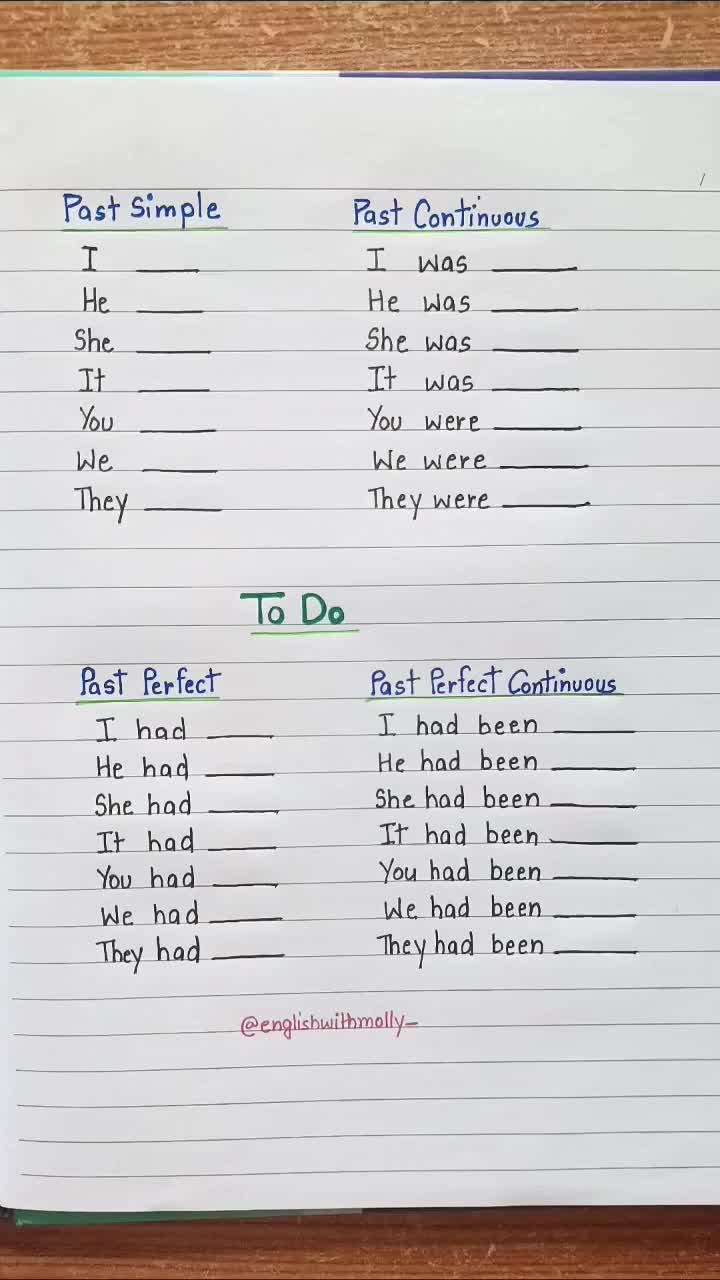 Past Simple
I ____
He ____
She ____
It ____
You ____
We ____
They ____
Past Continuous
I was ____
He was ____
She was ____
It was ____
You were ____
We were ____
They were ____
To Do
Past Perfect
I had ____
He had ____
She had ____
It had ____
You had ____
We had ____
They had ____
Past Perfect Continuous
I had been ____
He had been ____
She had been ____
It had been ____
You had been ____
We had been ____
They had been ____
@englishwithmolly_